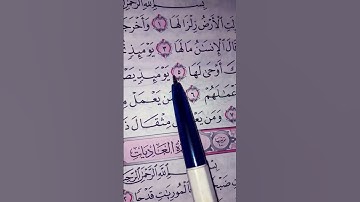 بِسْمِ اللَّهِ الرَّحْمَٰ
الْأَرْضُ زِلْزَالَهَا ١ وَأَخْرَجَ
الْإِنسَانُ مَا لَهَا ٣ يَوْمَئِذٍ
أَوْحَىٰ لَهَا ٥ يَوْمَئِذٍ
أَعْمَالَهُمْ ٦ فَمَن يَعْمَلْ
وَمَن يَعْ مِثْقَالَ
الْعَادِيَاتِ
بِسْمِ اللَّهِ الرَّحْمَٰنِ
فَالْمُورِيَاتِ قَدْحًا